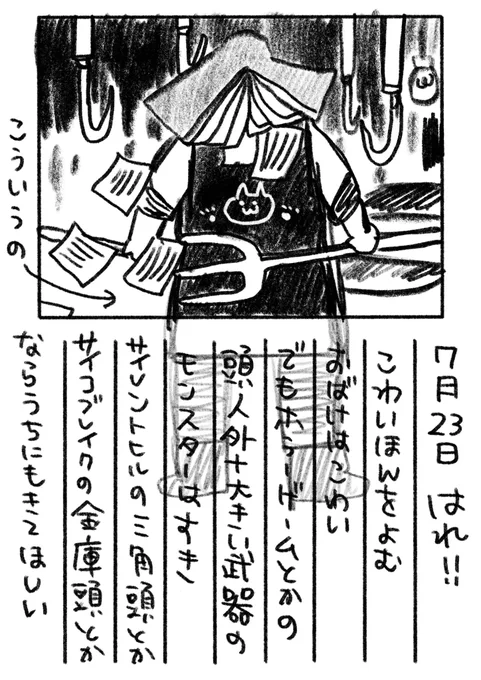 7月23日 はれ!!
こわいほんをよむ
おばけはこわい
でもホラーゲームとかの
頭人外+大きい武器の
モンスターはすき
サイレントヒルの三角頭とか
サイコブレイクの金庫頭とか
ならうちにもきてほしい
こういうの